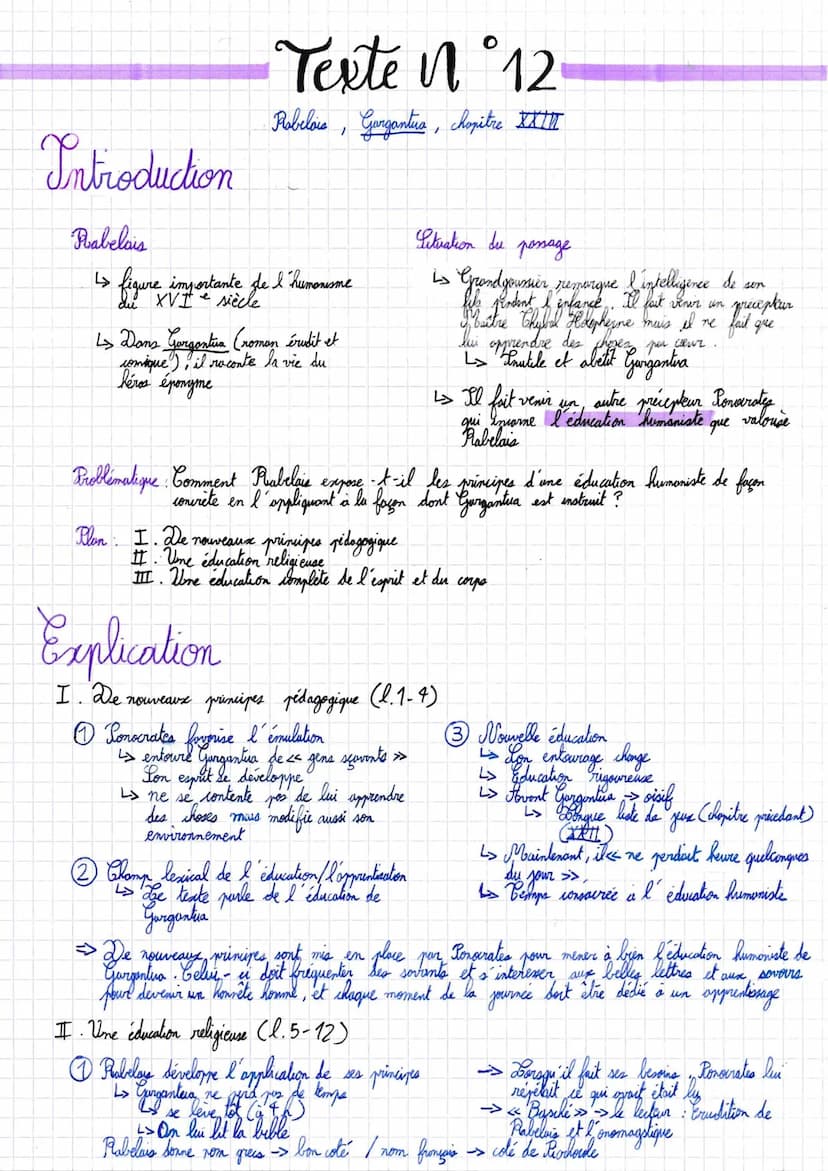 Texte N°12
Rabelais, Gargantua, chapitre XXIII
Introduction
Rabelais
↳ figure importante de l'humanisme
du XVIe siècle
↳ Dans Gargantua (roman érudit et
comique), il raconte la vie du
héros éponyme
Situation du passage
↳ Grandgousier remarque l'intelligence de son
fils pendant l'enfance. Il fait venir un précepteur
Maître Thubal Holopherne mais il ne fait que
lui apprendre des choses par cœur.
↳ Inutile et abêtit Gargantua
↳ Il fait venir un autre précepteur Ponocrates
qui incarne l'éducation humaniste que valorise
Rabelais
Problématique : Comment Rabelais expose-t-il les principes d'une éducation humaniste de façon
concrète en l'appliquant à la façon dont Gargantua est instruit ?
Plan : I. De nouveaux principes pédagogique
II. Une éducation religieuse
III. Une éducation complète de l'esprit et du corps
Explication
I. De nouveaux principes pédagogique (l.1-4)
① Ponocrates favorise l'émulation
↳ entouré Gargantua de << gens sçavants >>
Son esprit se développe
↳ ne se contente pas de lui apprendre
des choses mais modifie aussi son
environnement
② Champ lexical de l'éducation/l'apprentissation
↳ Le texte parle de l'éducation de
Gargantua
③ Nouvelle éducation
↳ Son entourage change
↳ Education rigoureuse
↳ Avant Gargantua → oisif
↳ Longue liste de jeux (chapitre précédant)
(XXII)
↳ Maintenant, il << ne perdait heure quelconques
du jour >>
↳ Temps consacrée à l'éducation humaniste
⇒ De nouveaux principes sont mis en place par Ponocrates pour mener à bien l'éducation humaniste de
Gargantua. Celui-ci doit fréquenter des savants et s'interesser aux belles lettres et aux savoirs
pour devenir un honnête homme, et chaque moment de la journée doit être dédié à un apprentissage
II. Une éducation religieuse (l.5-12)
① Rabelais développe l'application de ses principes
↳ Gargantua ne perd pas de temps
↳ se lève tôt (à 4 h)
↳ On lui lit la bible
Rabelais donne nom grecs → bon coté / nom français → coté de Picrohole
→ Lorsqu'il fait ses besoins, Ponocrates lui
répétait ce qui avait était lu
→ << Basché >> → le lecteur : Erudition de
Rabelais et l'onomagstique